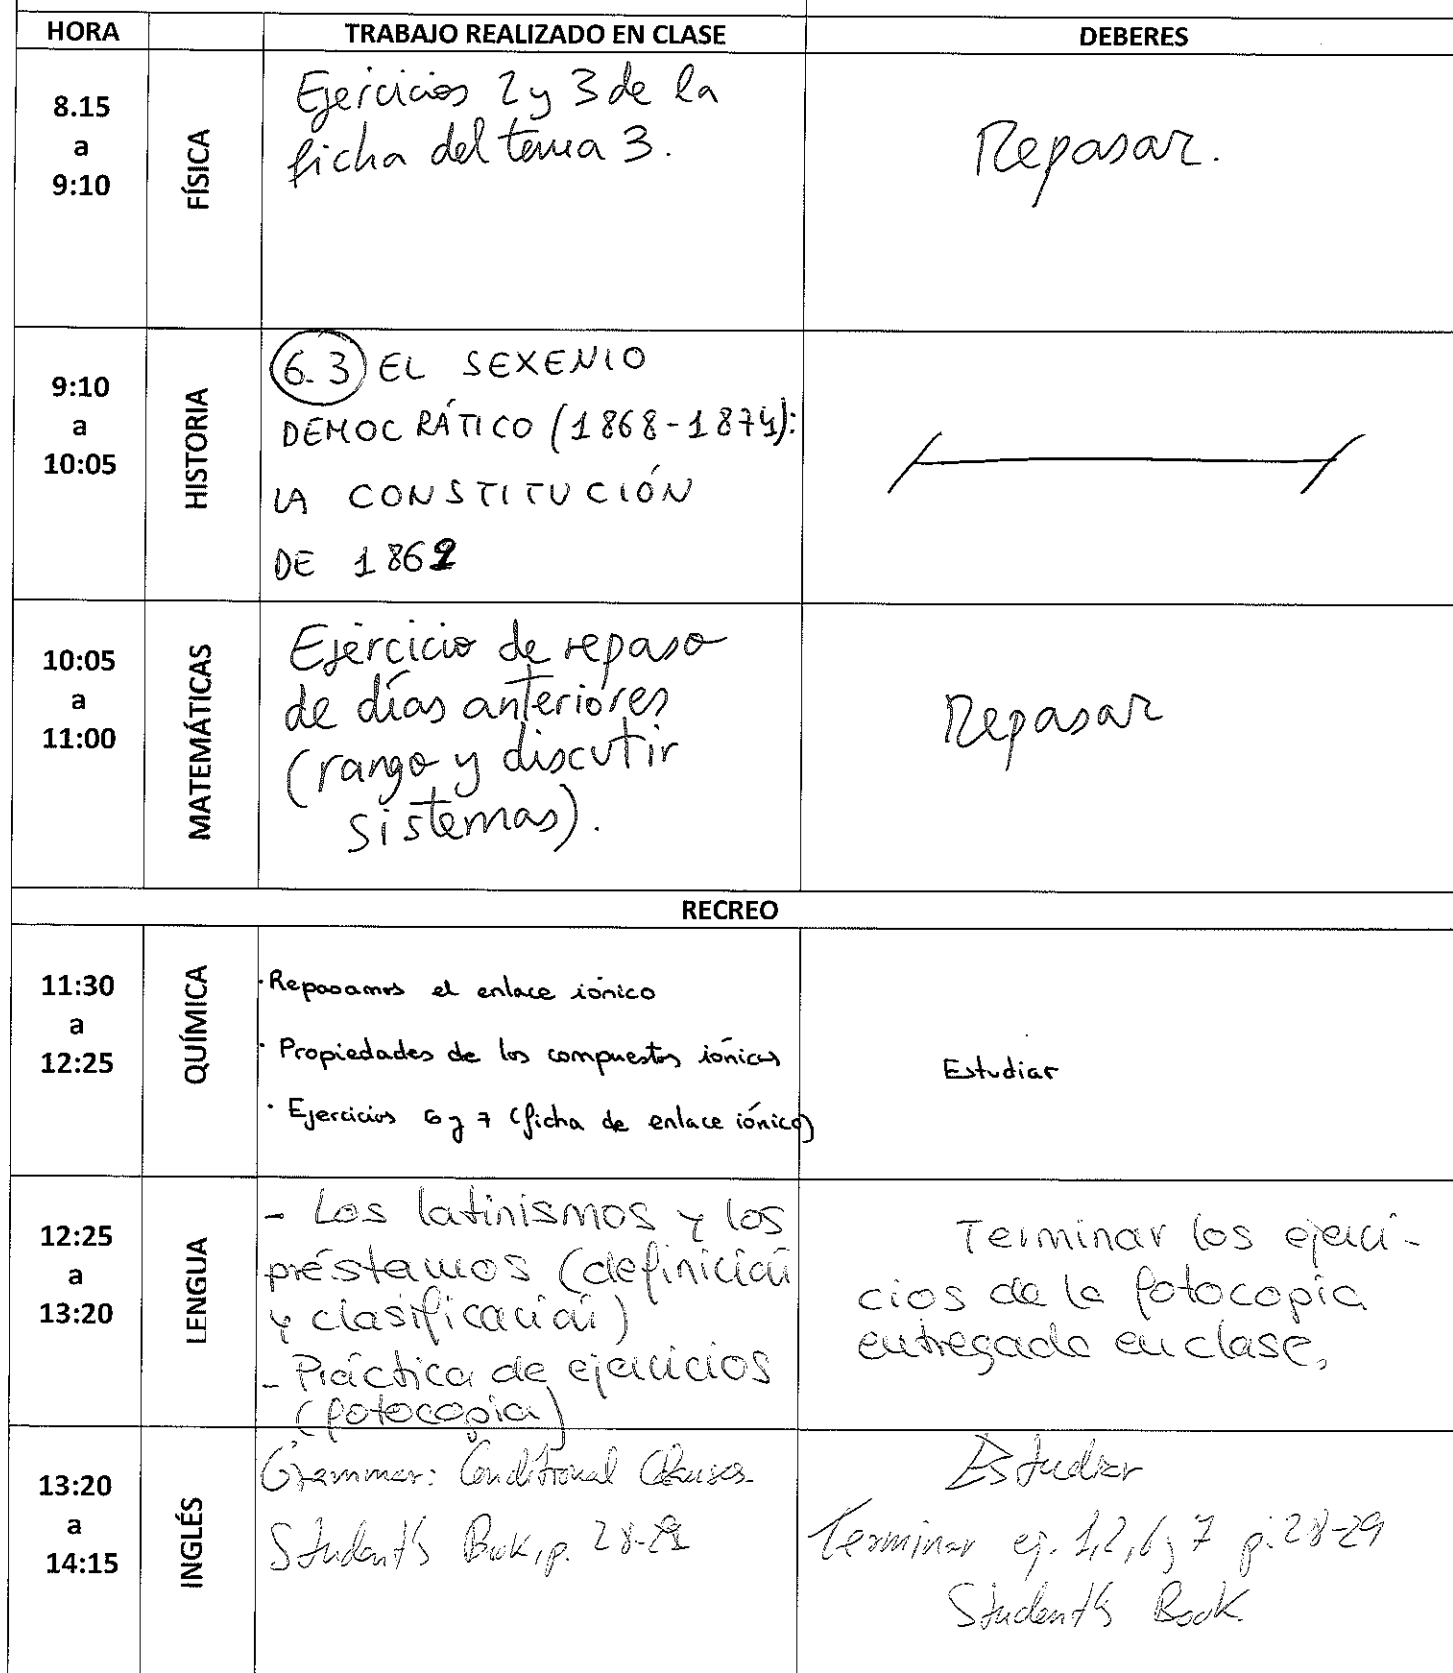 HORA TRABAJO REALIZADO EN CLASE DEBERES
8.15
a
9:10
FÍSICA
Ejercicios 2 y 3 de la
ficha del tema 3.
Repasar.
9:10
a
10:05
HISTORIA
6.3 EL SEXENIO
DEMOCRÁTICO (1868-1874):
LA CONSTITUCIÓN
DE 1869
10:05
a
11:00
MATEMÁTICAS
Ejercicio de repaso
de días anteriores
(rango y discutir
sistemas).
Repasar
RECREO
11:30
a
12:25
QUÍMICA
· Repasamos el enlace iónico
· Propiedades de los compuestos iónicos
· Ejercicios 6 y 7 (ficha de enlace iónico)
Estudiar
12:25
a
13:20
LENGUA
- Los latinismos y los
préstamos (definición
y clasificación)
- Práctica de ejercicios
(fotocopia)
Terminar los ejerci-
cios de la fotocopia
entregada en clase.
13:20
a
14:15
INGLÉS
Grammar: Conditional Clauses
Student's Book, p. 28-29
Estudiar
Terminar ej. 1,2,6 y 7 p. 28-29
Student's Book